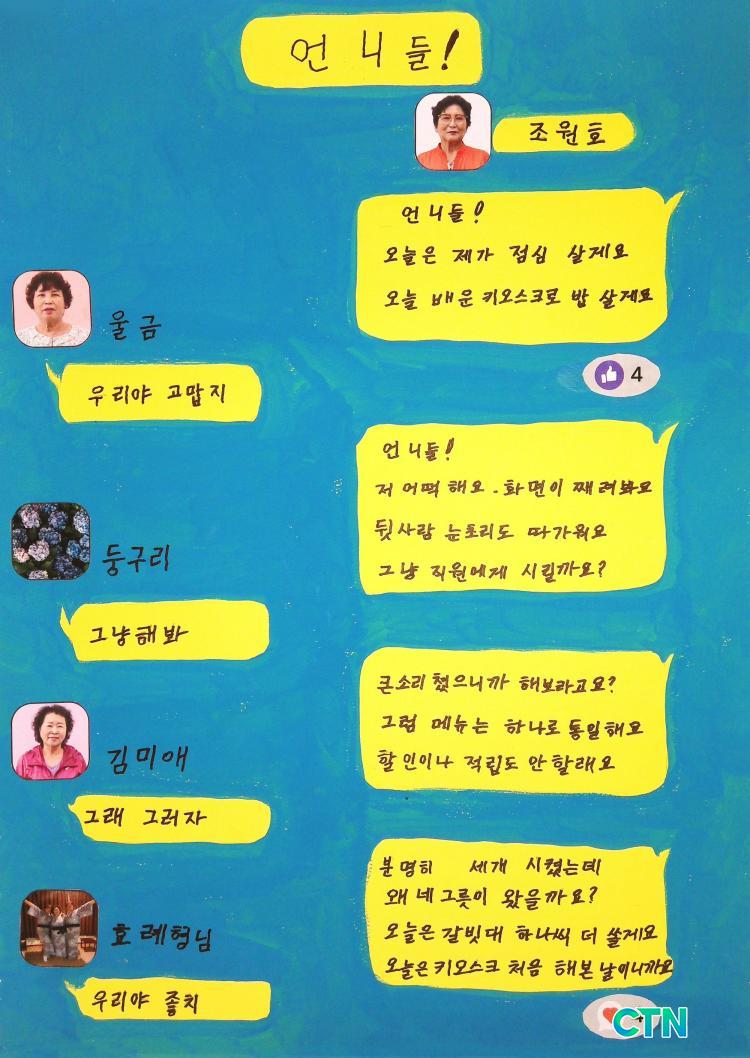 언니들!
조원호
언니들!
오늘은 제가 점심 살게요
오늘 배운 키오스크로 밥 살게요
울금
우리야 고맙지
4
언니들!
저 어떡해요. 화면이 째려봐요
뒷사람 눈초리도 따가워요
그냥 직원에게 시킬까요?
둥구리
그냥해봐
큰소리 쳤으니까 해보라고요?
그럼 메뉴는 하나로 통일해요
할인이나 적립도 안 할래요
김미애
그래 그러자
분명히 세개 시켰는데
왜 네그릇이 왔을까요?
오늘은 갈빗대 하나씩 더 쏠게요
오늘은키오스크 처음 해본 날이니까요
효례형님
우리야 좋치
CTN